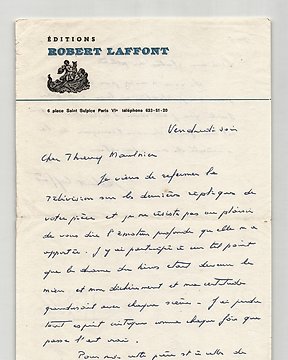 ÉDITIONS
ROBERT LAFFONT
6 place Saint Sulpice Paris VIᵉ téléphone 633-51-20
Vendredi soir
Cher Thierry Maulnier
Je viens de refermer la
Télévision sur les dernières répliques de
votre pièce et je ne résiste pas au plaisir
de vous dire l'émotion profonde que elle m'a
apportée. J'y ai participé à un tel point
que le drame des héros était devenu le
mien et mon déchirement et ma certitude
grandissait avec chaque scène. J'ai perdu
tout esprit critique comme chaque fois que
passe l'art vrai.
Pour moi cette pièce est à celle de